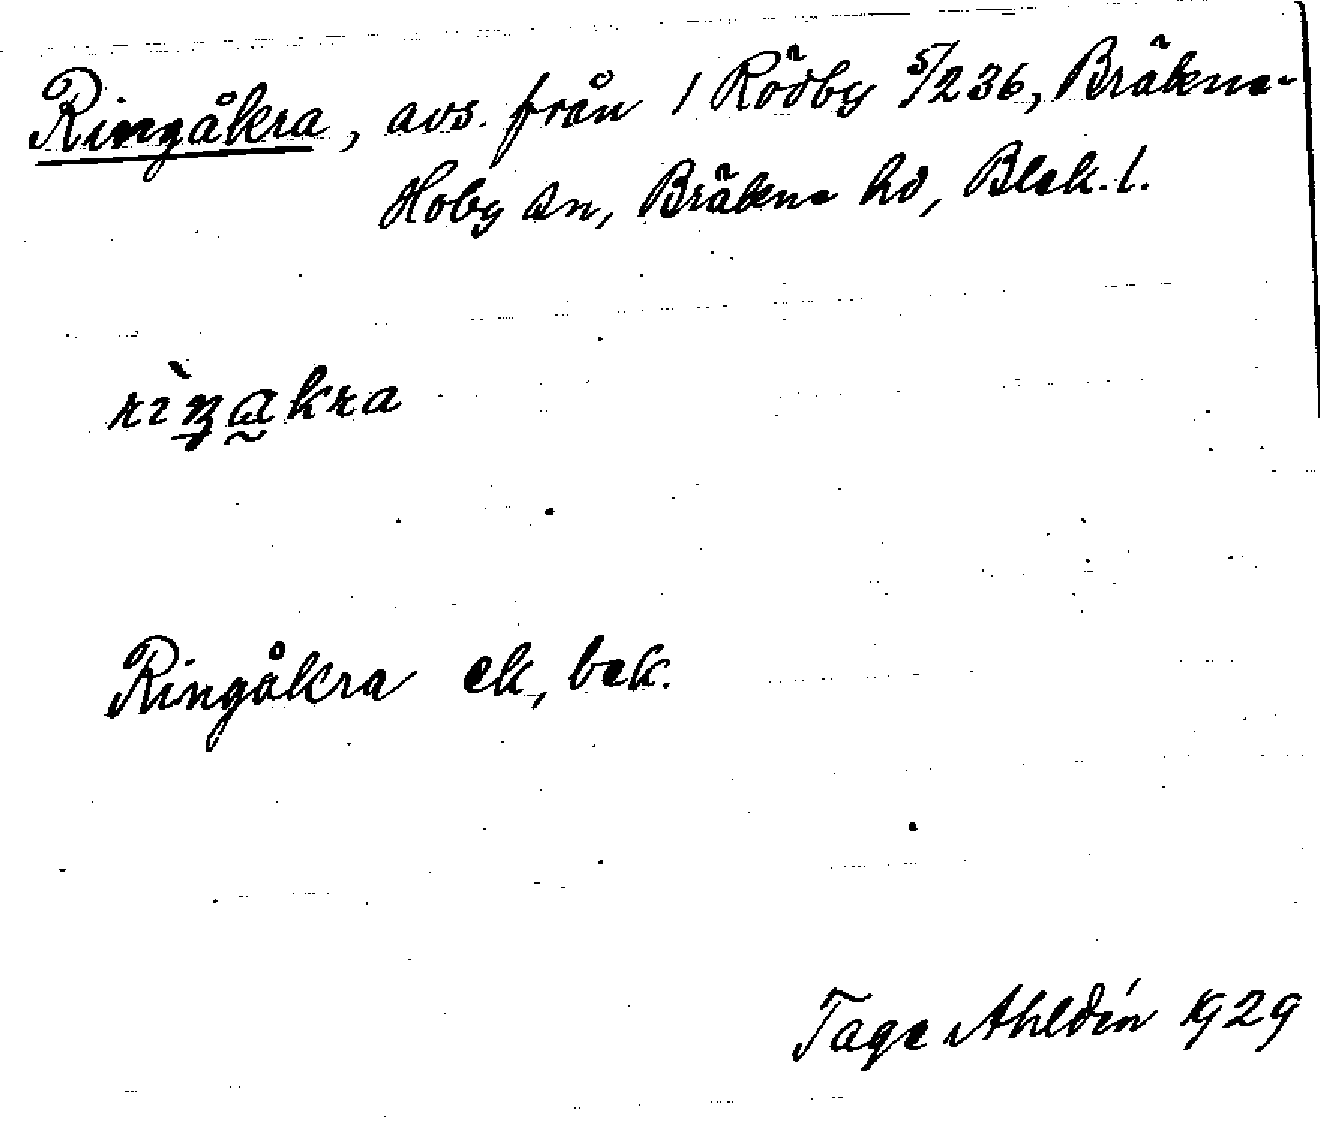 Ringåkra, avs. från 1 Rödby 5/236, Bräkne-
Hoby sn, Bräkne hd, Blek. l.
rìŋakra
Ringåkra ek, bek.
Tage Ahldén 1929